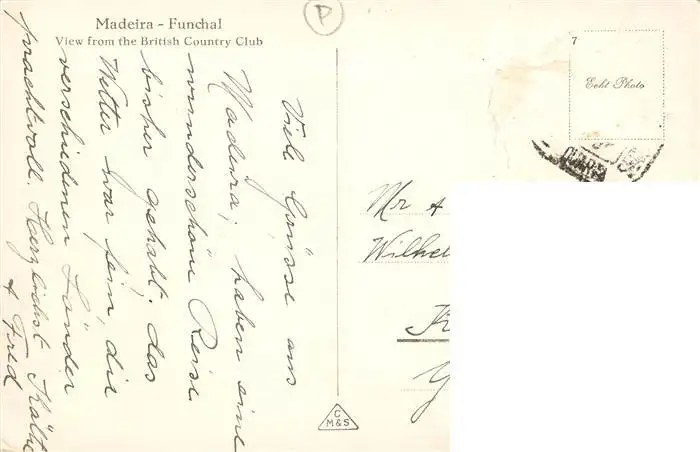 Madeira - Funchal
View from the British Country Club
P
7
Echt Photo
Viele Grüsse aus
Madeira, haben eine
wunderschöne Reise
bisher gehabt. das
Wetter war fein, die
verschiedenen Länder
prachtvoll. Herzlichst Käthe
& Fred
Mr &
Wilhel
C
M&S